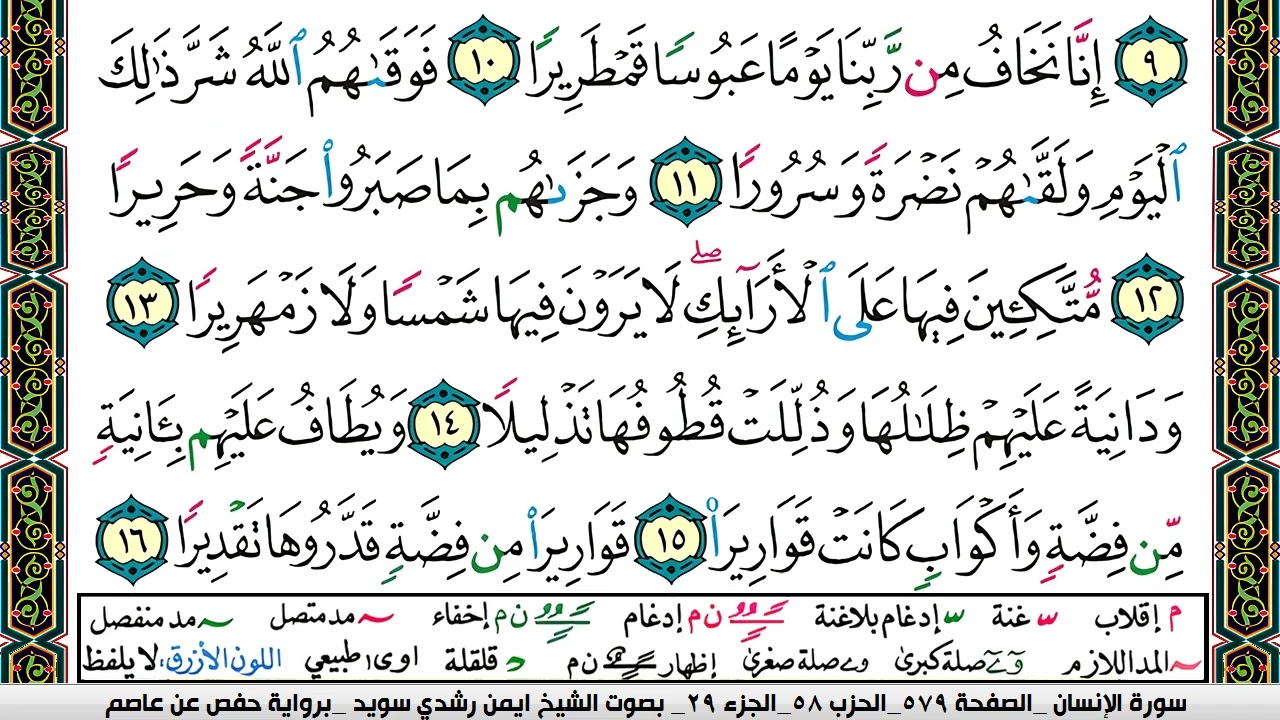 ٩ إِنَّا نَخَافُ مِن رَّبِّنَا يَوْمًا عَبُوسًا قَمْطَرِيرًا ١٠ فَوَقَىٰهُمُ ٱللَّهُ شَرَّ ذَٰلِكَ
ٱلْيَوْمِ وَلَقَّىٰهُمْ نَضْرَةً وَسُرُورًا ١١ وَجَزَىٰهُم بِمَا صَبَرُوا۟ جَنَّةً وَحَرِيرًا
١٢ مُّتَّكِـِٔينَ فِيهَا عَلَى ٱلْأَرَآئِكِ ۖ لَا يَرَوْنَ فِيهَا شَمْسًا وَلَا زَمْهَرِيرًا ١٣
وَدَانِيَةً عَلَيْهِمْ ظِلَـٰلُهَا وَذُلِّلَتْ قُطُوفُهَا تَذْلِيلًا ١٤ وَيُطَافُ عَلَيْهِم بِـَٔانِيَةٍ
مِّن فِضَّةٍ وَأَكْوَابٍ كَانَتْ قَوَارِيرَا۠ ١٥ قَوَارِيرَا۟ مِن فِضَّةٍ قَدَّرُوهَا تَقْدِيرًا ١٦
م إقلاب غنة إدغام بلاغنة ن م إدغام ن م إخفاء مد متصل مد منفصل
المد اللازم صلة كبرى صلة صغرى إظهار ن م قلقلة اوى طبيعي اللون الأزرق، لا يلفظ
سورة الإنسان _الصفحة ٥٧٩_الحزب ٥٨_الجزء ٢٩_ بصوت الشيخ ايمن رشدي سويد _برواية حفص عن عاصم